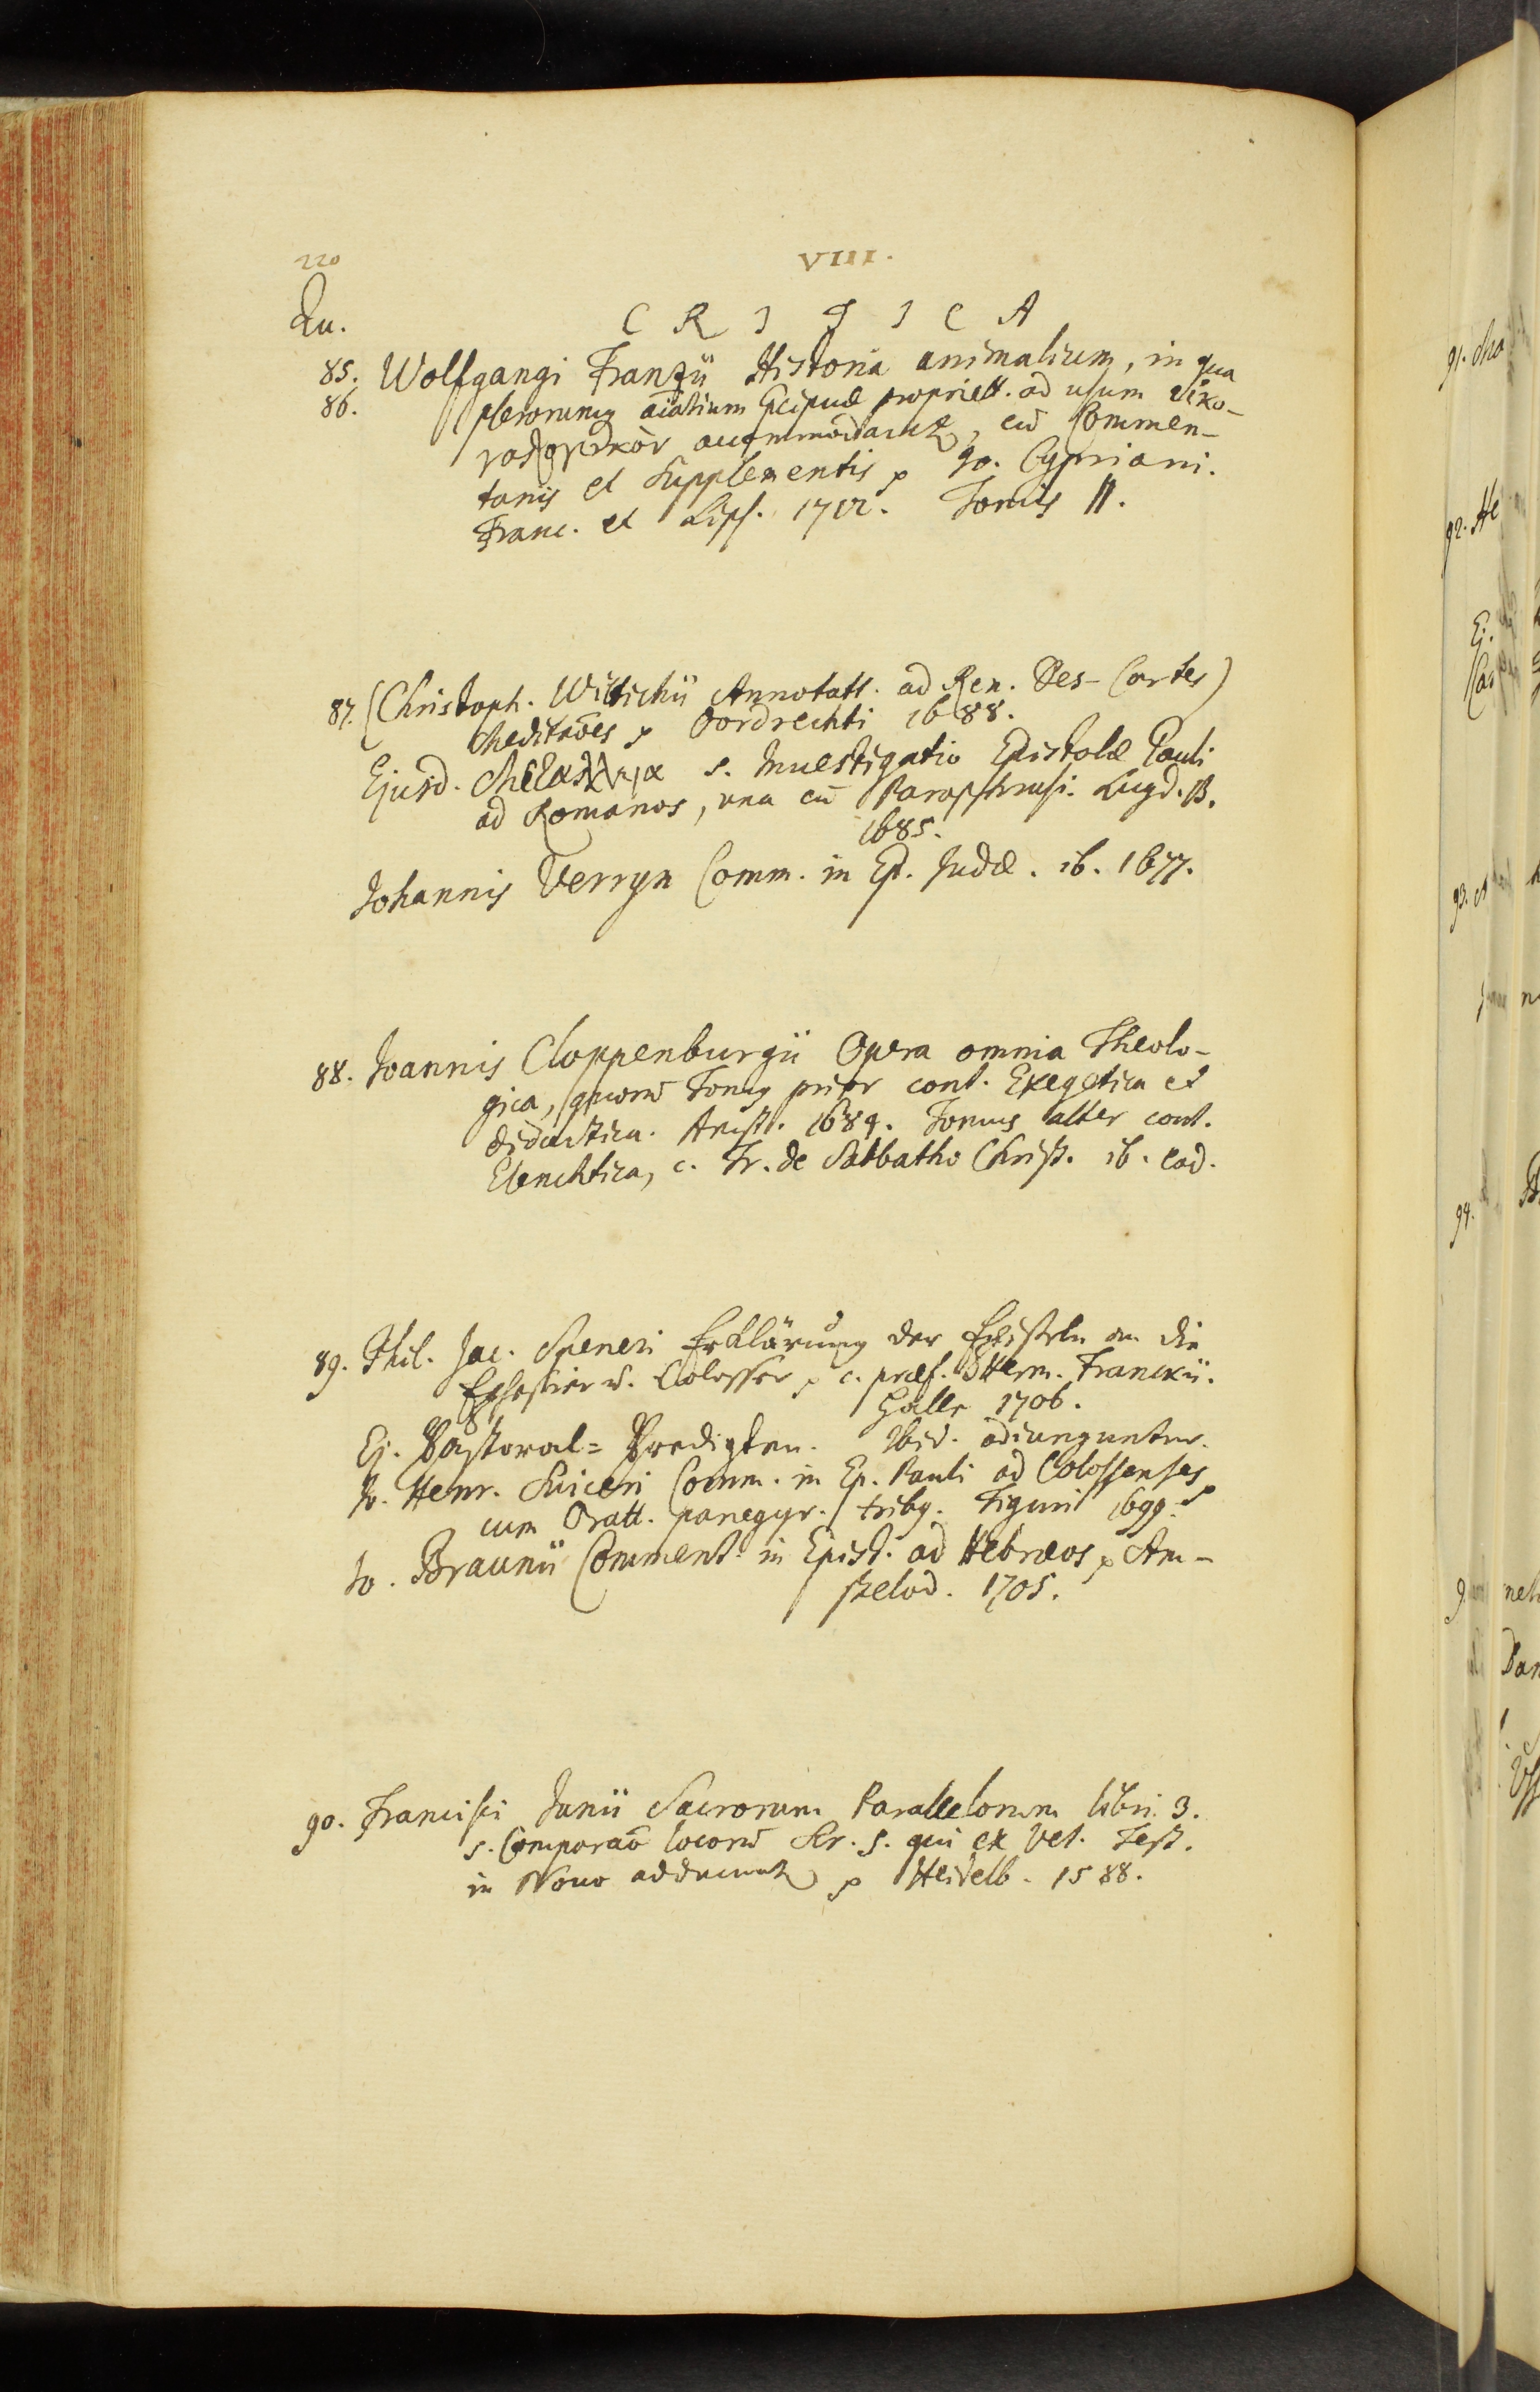 220
VIII.
Qu.
C R I T I C A
85. Wolfgangi Franzii Historia animalium, in qua
86. plerorumq aïalium præcipuæ propriett. ad usum εἰκο-
νολογικὸν accommodantur, cū Commen-
tariis et Supplementis p Jo. Cypriani.
Franc. et Lips. 1712. Tomis II.
87. (Christoph. Wittichii Annotatt. ad Ren. Des-Cartes)
Meditāoēs p Dordrechti 1688.
Ejusd. s. Investigatio Epistolæ Pauli
ad Romanos, una cū Paraphrasi. Lugd. B.
1685.
Johannis Verryn Comm. in Ep. Judæ. ib. 1677.
88. Joannis Cloppenburgii Opera omnia Theolo-
gica, quorū Tomq prior cont. Exegetica et
didactica. Amst. 1684. Tomus alter cont.
Elenchtica, c. Tr. de Sabbatho Christ. ib. eod.
89. Phil. Jac. Speneri Erklärung der Episteln an die
Ephesier u. Colosser p c. præf. Herm. Franckii.
Halle 1706.
Ej. Pastoral= Predigten. Ibid. adiunguntur.
Jo. Henr. Suiceri Comm. in Ep. Pauli ad Colossenses
cum Oratt. panegyr. tribq. Tiguri 1699. p
Jo. Braunii Comment. in Epist. ad Hebræos p Am-
stelod. 1705.
90. Francisci Junii Sacrorum Parallelorum libri 3.
s. Comparāō locorū Scr. S. qui ex Vet. Test.
in Novo adducuntur p Heidelb. 1588.
91.
92. He
Ej.
93.
94.